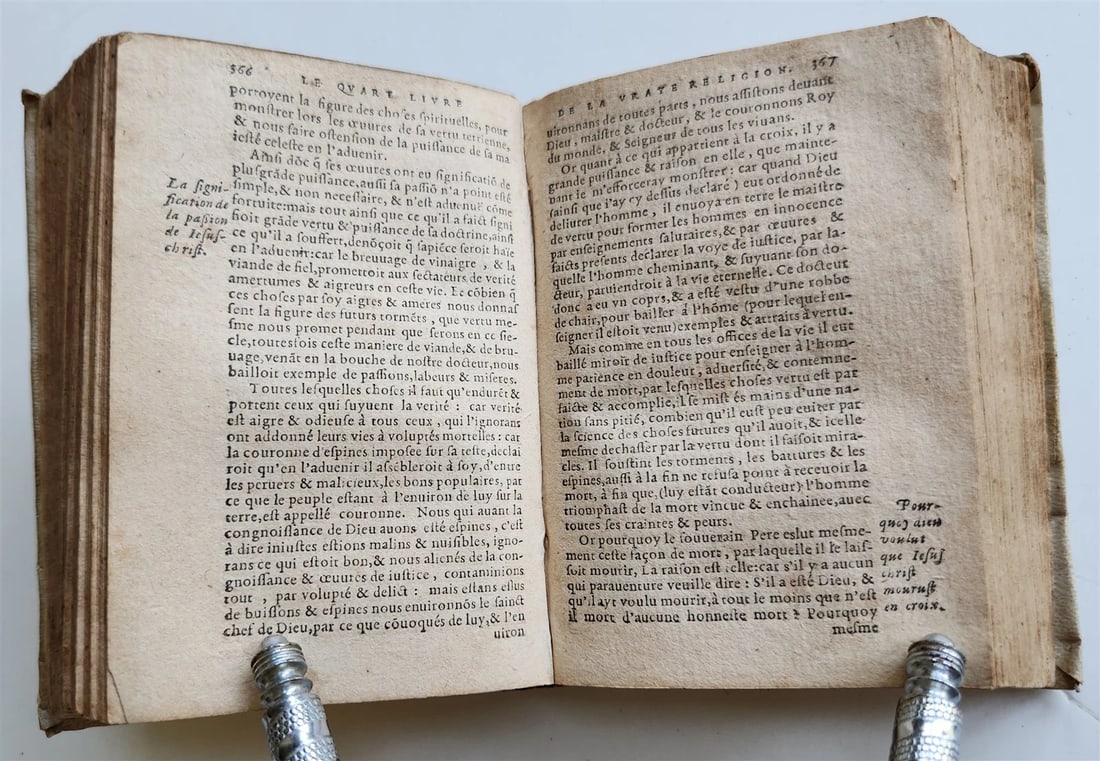 366 LE QVART LIVRE
portoyent la figure des choses spirituelles, pour
monstrer lors les œuures de sa vertu terrienne,
& nous faire ostension de la puissance de sa ma
iesté celeste en l'aduenir.
Ainsi dõc q̃ ses œuures ont eu significatiõ de
plusgrãde puissance, aussi sa passiõ n'a point esté
simple, & non necessaire, & n'est aduenuë cõme
fortuite: mais tout ainsi que ce qu'il a faict signi
fioit grãde vertu & puissance de sa doctrine, ainsi
ce qu'il a souffert, denõçoit q̃ sapiẽce seroit haïe
en l'aduenir: car le breuuage de vinaigre, & la
viande de fiel, promettoit aux sectateurs de verité
amertumes & aigreurs en ceste vie. Et cõbien q̃
ces choses par soy aigres & ameres nous donnas
sent la figure des futurs tormẽts, que vertu me-
sme nous promet pendant que serons en ce sie-
cle, toutesfois ceste maniere de viande, & de bru-
uage, venãt en la bouche de nostre docteur, nous
bailloit exemple de passions, labeurs & miseres.
Toutes lesquelles choses il faut qu'endurẽt &
portent ceux qui suyuent la verité: car verité
est aigre & odieuse à tous ceux, qui l'ignorans
ont addonné leurs vies à voluptés mortelles: car
la couronne d'espines imposee sur sa teste, declai
roit qu'en l'aduenir il assẽbleroit à soy, d'entre
les peruers & malicieux, les bons populaires, par
ce que le peuple estant à l'enuiron de luy sur la
terre, est appellé couronne. Nous qui auant la
congnoissance de Dieu auons esté espines, c'est
à dire iniustes estions malins & nuisibles, igno-
rans ce qui estoit bon, & nous alienés de la con-
gnoissance & œuures de iustice, contaminions
tout, par volupté & delict: mais estans eslus
de buissons & espines nous enuironõs le sainct
chef de Dieu, par ce que cõuoqués de luy, & l'en
uiron
La signi-
fication de
la passion
de Iesus-
christ.
DE LA VRAYE RELIGION. 367
uironnans de toutes parts, nous assistons deuant
Dieu, maistre & docteur, & le couronnons Roy
du monde, & Seigneur de tous les viuans.
Or quant à ce qui appartient à la croix, il y a
grande puissance & raison en elle, que mainte-
nant ie m'efforceray monstrer: car quand Dieu
(ainsi que i'ay cy dessus declaré) eut ordonné de
deliurer l'homme, il enuoya en terre le maistre
de vertu pour former les hommes en innocence
par enseignements salutaires, & par œuures &
faicts presents declarer la voye de iustice, par la-
quelle l'homme cheminant, & suyuant son do-
cteur, paruiendroit à la vie eternelle. Ce docteur
donc a eu vn coprs, & a esté vestu d'vne robbe
de chair, pour bailler à l'hõme (pour lequel en-
seigner il estoit venu) exemples & attraits à vertu.
Mais comme en tous les offices de la vie il eut
baillé miroir de iustice pour enseigner à l'hom-
me patience en douleur, aduersité, & contemne-
ment de mort, par lesquelles choses vertu est par
faicte & accomplie, il se mist és mains d'vne na-
tion sans pitié, combien qu'il eust peu euiter par
la science des choses futures qu'il auoit, & icelle
mesme dechasser par la vertu dont il faisoit mira-
cles. Il soustint les torments, les battures & les
espines, aussi à la fin ne refusa point à receuoir la
mort, à fin que, (luy estãt conducteur) l'homme
triomphast de la mort vincue & enchainee, auec
toutes ses craintes & peurs.
Or pourquoy le souuerain Pere eslut mesme-
ment ceste façon de mort, par laquelle il se lais-
soit mourir, La raison est icelle: car s'il y a aucun
qui parauenture veuille dire: S'il a esté Dieu, &
qu'il ayt voulu mourir, à tout le moins que n'est
il mort d'aucune honneste mort? Pourquoy
mesme
Pour-
quoy dieu
voulut
que Iesus
christ
mourust
en croix.